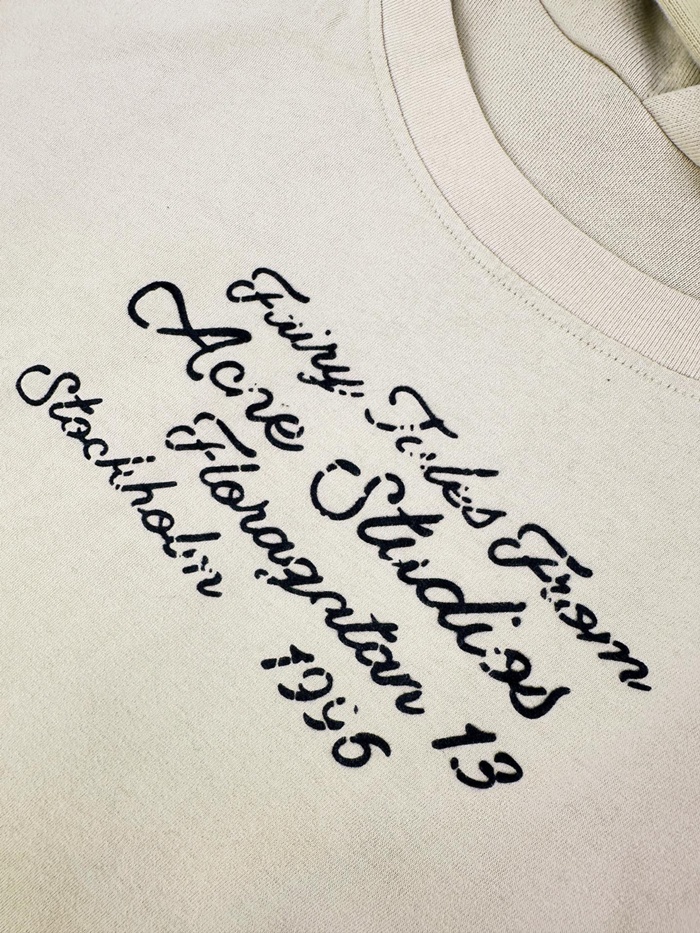 Fairy Tales From
Acne Studios
Floragatan 13
Stockholm
1996